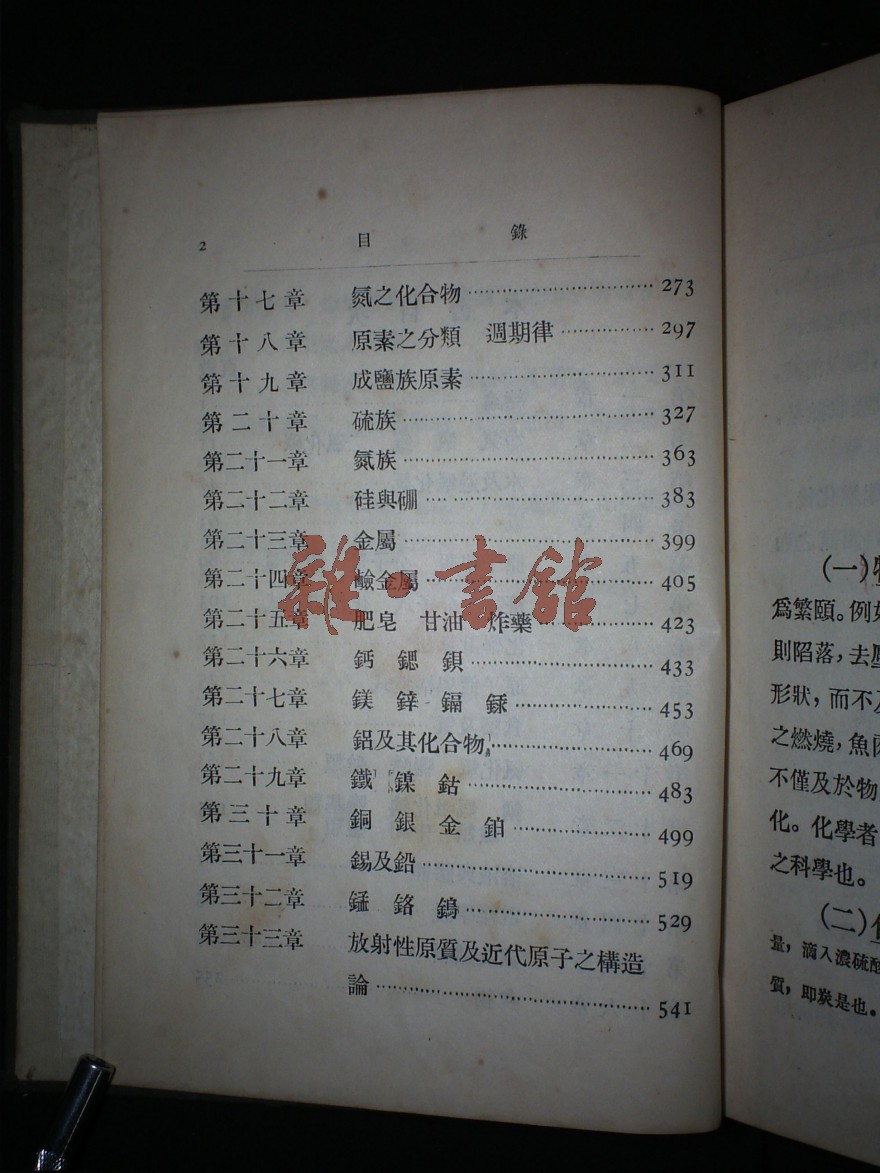 2 目 錄
第十七章 氮之化合物 273
第十八章 原素之分類 週期律 297
第十九章 成鹽族原素 311
第二十章 硫族 327
第二十一章 氮族 363
第二十二章 硅與硼 383
第二十三章 金屬 399
第二十四章 鹼金屬 405
第二十五章 肥皂 甘油 炸藥 423
第二十六章 鈣 鍶 鋇 433
第二十七章 鎂 鋅 鎘 銾 453
第二十八章 鋁及其化合物 469
第二十九章 鐵 鎳 鈷 483
第三十章 銅 銀 金 鉑 499
第三十一章 錫及鉛 519
第三十二章 錳 鉻 鎢 529
第三十三章 放射性原質及近代原子之構造
論 541
雜·書館
(一)
爲繁頤。例如
則陷落,去
形狀,而不
之燃燒,魚
不僅及於物
化。化學者
之科學也。
(二)
量,滴入濃硫酸
質,即炭是也。